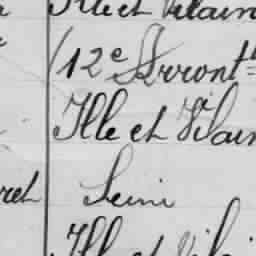 Ille et Vilain
(12e Arront
Ille et Vilain
ret Seine
Ille et Vilai